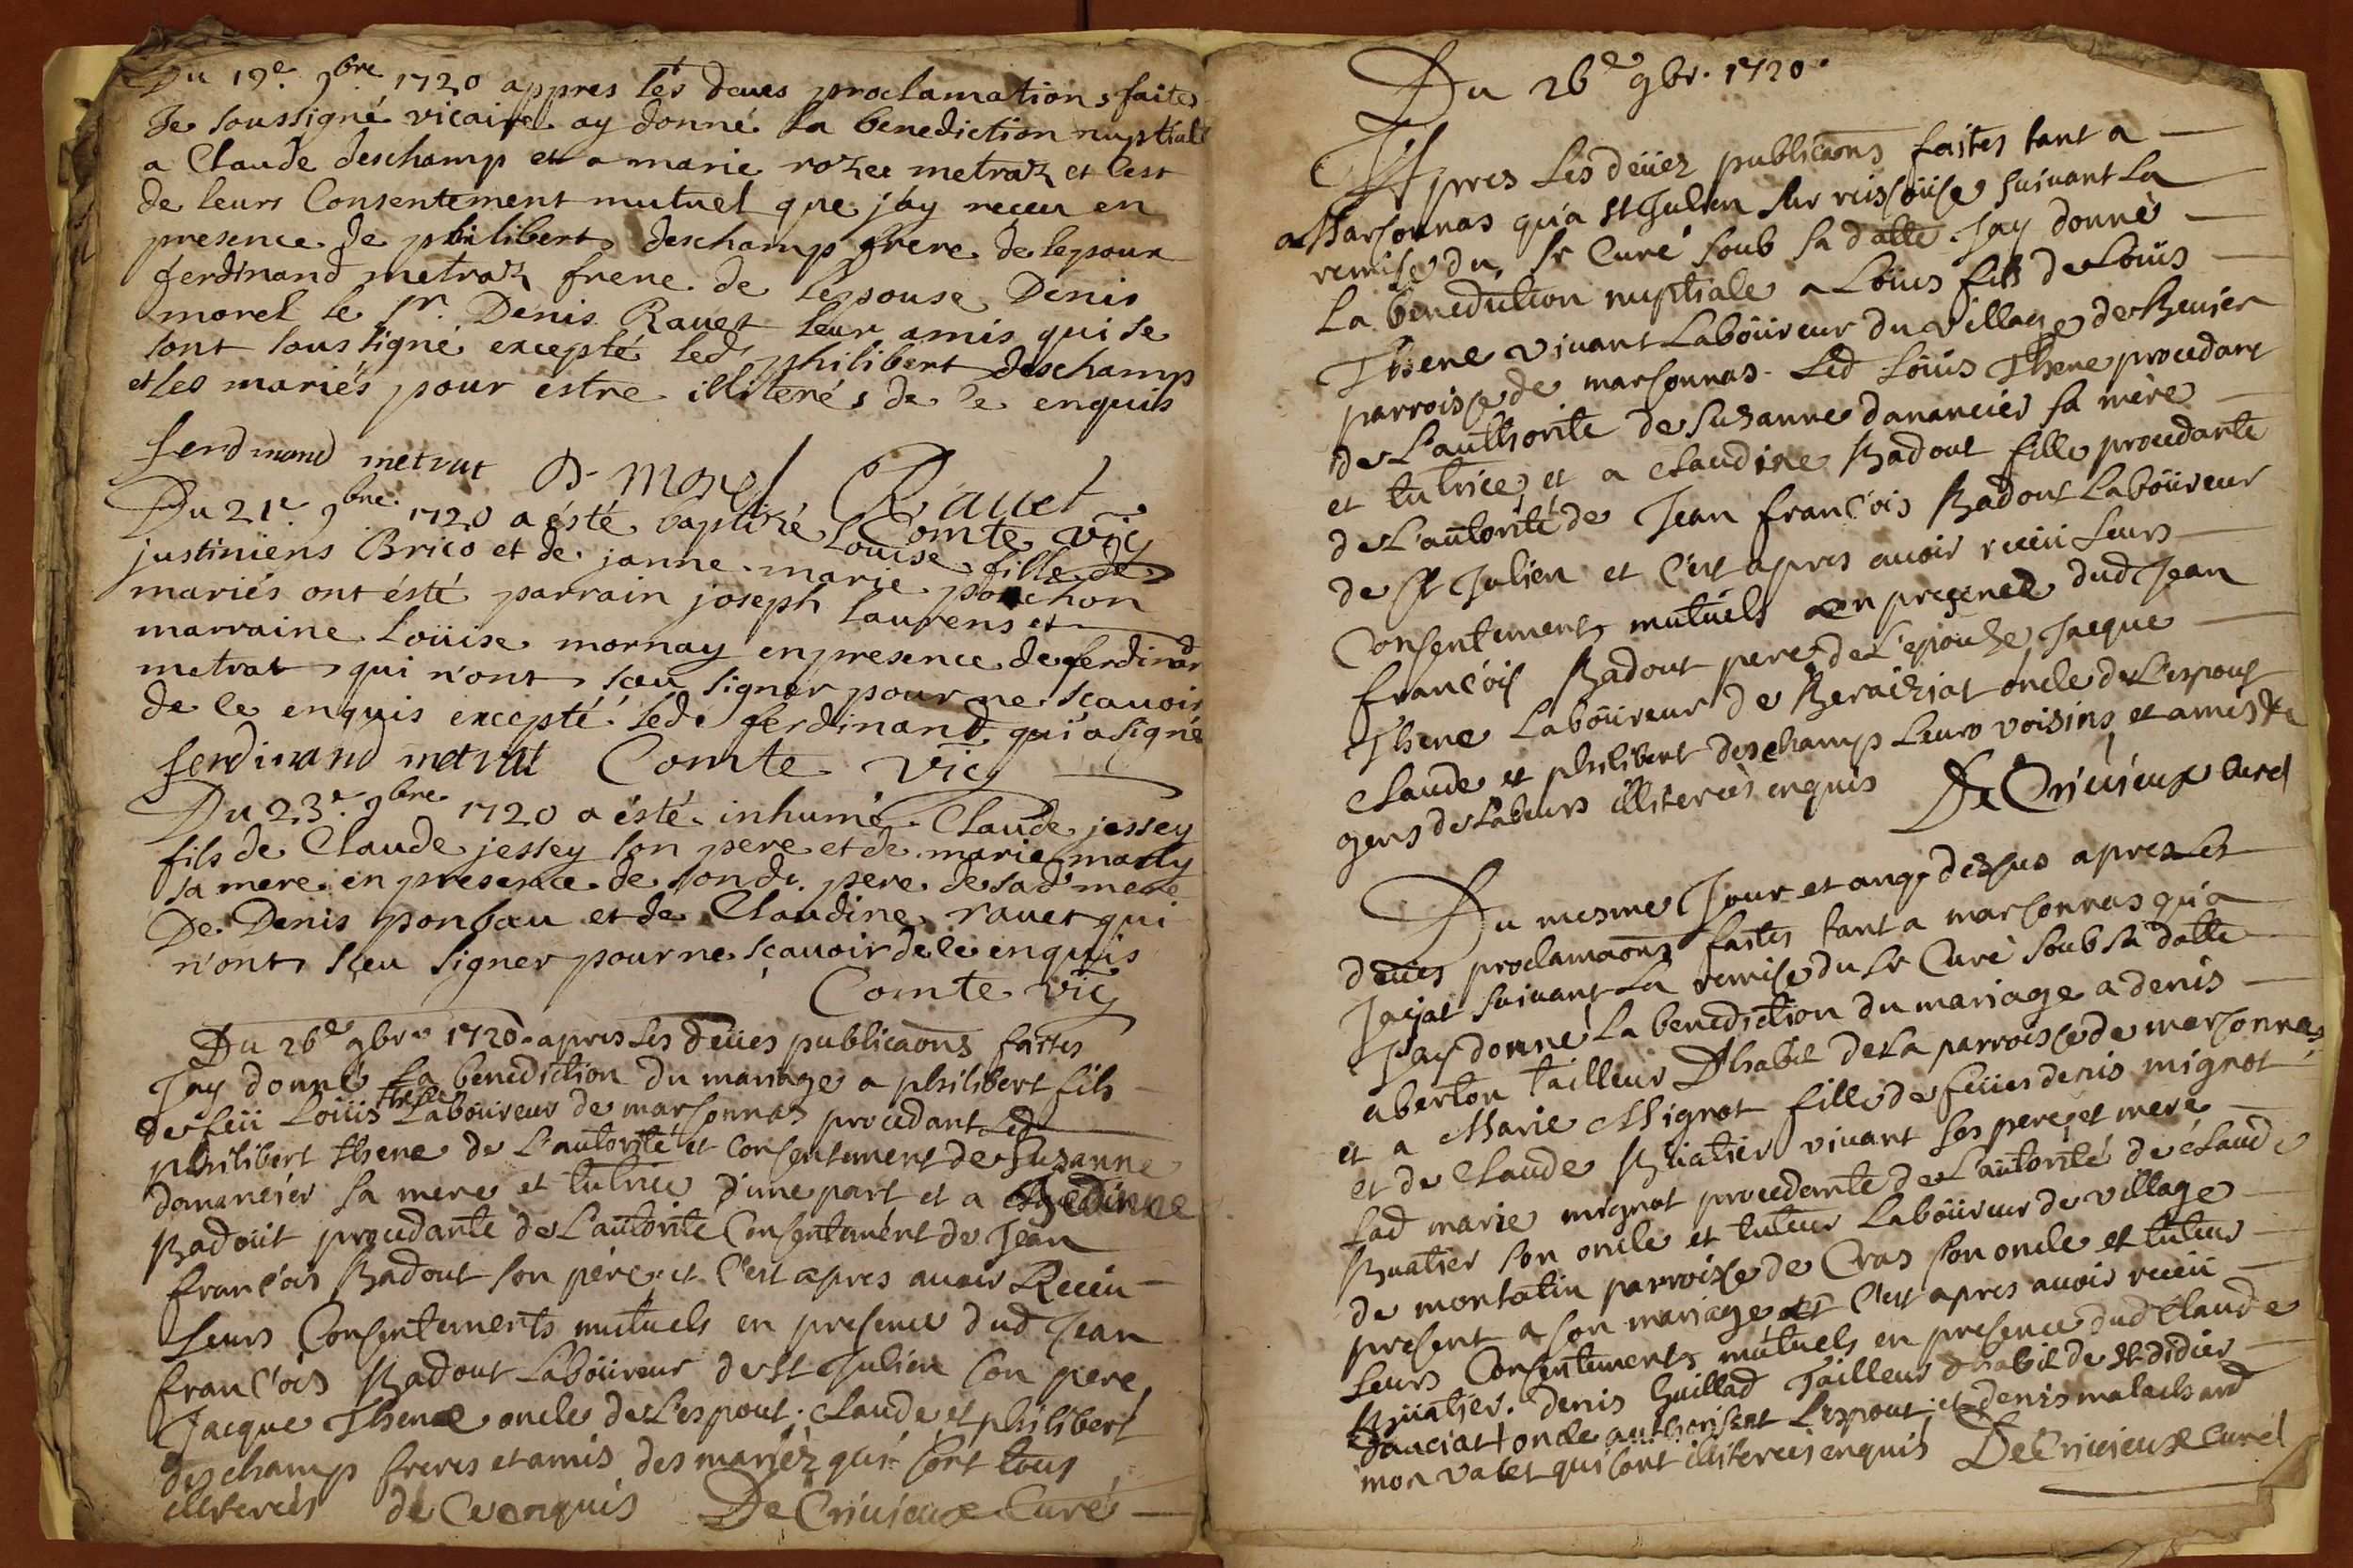 Du 19e. 9bre 1720 appres les deues proclamations faites
Je soussigné vicaire ay donné la benediction nuptiale
a Claude deschamp et a marie rozee metraz et cest
de leurs Consentement mutuel que j'ay receu en
presence de philibert deschamp frere de lepoux
ferdinand metraz frere de lepouse Denis
morel le sr. Denis Rauet leur amis qui se
sont soussigné excepté led philibert deschamp
et les mariés pour estre illiterés de ce enquis
ferdinand metrat D. morel D Rauet
Comte vic
Du 21e. 9bre. 1720 a ésté baptizé Louise fille de
justiniens Brico et de janne marie ponchon
mariés ont ésté parrain joseph laurens et
marraine Loüise mornay en presence de ferdinand
metrat qui n'ont sceu signer pour ne sçauoir
de ce enquis excepté led. ferdinand qui a signé
ferdinand metrat Comte vic
Du 23e. 9bre 1720 a ésté inhumé Claude jessey
fils de Claude jessey son pere et de marie
sa mere en presence de sond. pere de sad mere
De Denis ponbœu et de Claudine rauet qui
n'ont sçeu signer pour ne sçauoir de ce enquis
Comte vic
Du 26e 9bre 1720. apres les deües publicaons faites
Jay donné la benediction du mariage a philibert fils
de feü Loüis thene Laboüreur de marsonnas procedant Led
philibert thene de L'autorité et consentement de Suzanne
damancier sa mere et tutrice d'une part et a
Radoüt procedante de L'autorité Consentement de Jean
françois Radout son père, et C'est apres auoir Receu
Leurs Consentements mutuels en presence dud Jean
françois Radout Laboüreur de St Julien son pere
Jacque Thene oncle de L'espout. Claude et philibert
deschamp freres et amis des mariéz qui sont tous
illiterées de Ce enquis DeCriuieux Curé
Du 26e 9br. 1720.
Apres Les deüez publicaons faites tant a
Marsonnas qu'a St Julien sur reissoüse suiuant La
remise du Sr Curé soub sa datte. Jay donné
La benediction nuptiale a Loüis fils de Loüis
Thene viuant Laboüreur du village de
parroisse de marsonnas. Led Loüis Thene procedant
de L'authorite de Suzanne damancier sa mère
et tutrice, et a Claudine Radout fille procedante
de L'autorité de Jean françois Radout Laboüreur
de St Julien et C'est apres auoir receü Leurs
Consentements mutuels en presence dud Jean
françois Radout pere de L'epouse, Jacque
Thene Laboüreur de Beraiziat oncle de L'espout
Claude et philibert deschamp Leurs voisins et amis
gens de Labeurs illiterées enquis DeCriuieux Curé
Du mesme Jour et an dessus apres Les
deües proclamaons faites tant a marsonnas qu'a
Jayat suiuant La remise du Sr Curé soub sa datte
Jay donné La benediction du mariage a denis
aberton tailleur D'habit de La parroisse de marsonnas
et a Marie Mignot fille de feües denis mignot
et de Claude Buatier viuant ses pere et mere
Lad marie mignot procedante de L'autorité de Claude
Buatier son oncle et tuteur Laboüreur de village
de montatin parroisse de Cras son oncle et tuteur
present a son mariage et C'est apres auoir receü
Leurs Consentements mutuels en presence dud Claude
Buatier. denis Guillad Tailleur d'habit de St didier
daussiat oncle authorisant L'espout et denis malechard
mon valet qui sont illiterées enquis DeCriuieux Curé